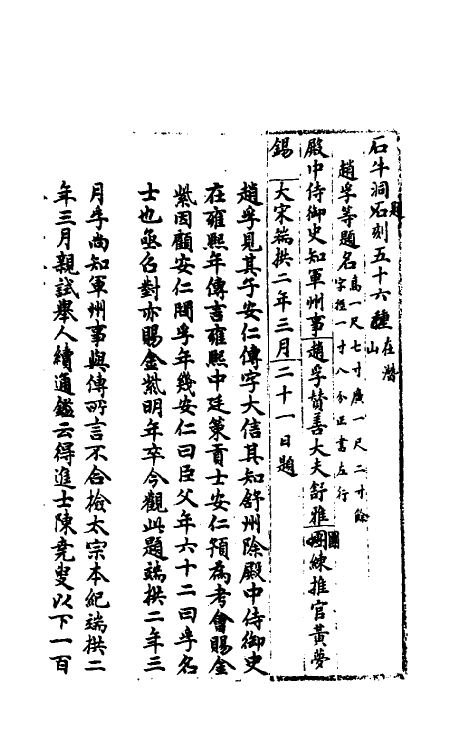 石牛洞石刻五十六種在潛山
題
趙孚等題名高一尺七寸廣一尺二寸餘字徑一寸八分正書左行
殿中侍御史知軍州事趙孚贊善大夫舒雅團練推官黃夢
錫 大宋端拱二年三月二十一日題
趙孚見其子安仁傳字大信其知舒州除殿中侍御史
在雍熙年傳言雍熙中廷策貢士安仁預為考會賜金
紫因顧安仁聞孚年幾安仁曰臣父年六十二曰孚名
士也亟召對亦賜金紫明年卒今觀此題端拱二年三
月孚尚知軍州事與傳所言不合撿太宗本紀端拱二
年三月親試舉人續通鑑云得進士陳堯叟以下一百